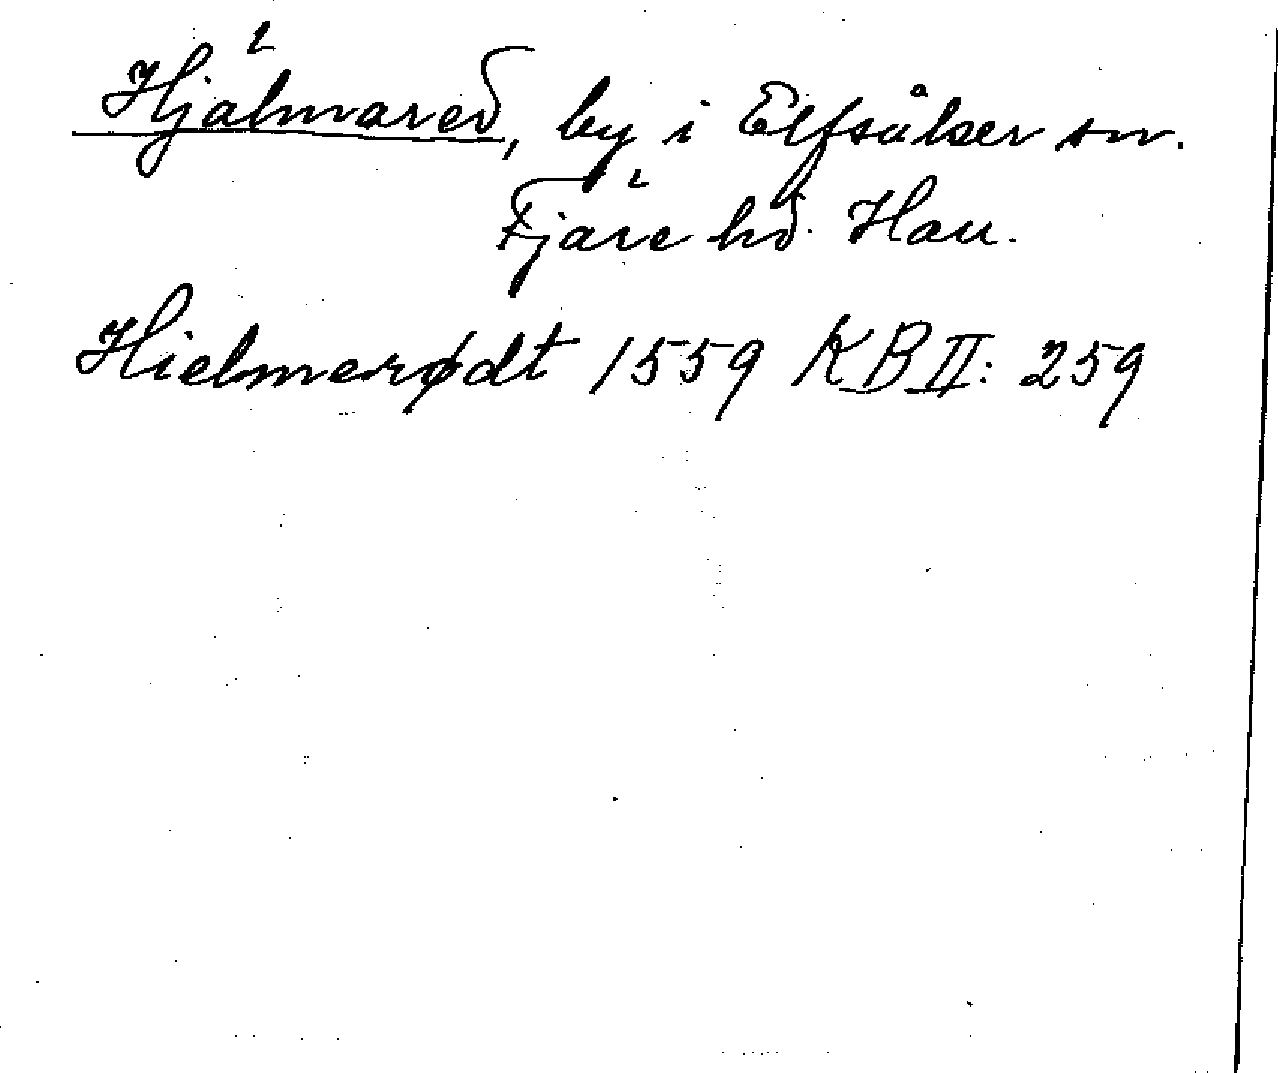 Hjälmared, by i Elfsåker sn.
Fjäre hd. Hall.
Hielmerødt 1559 KB II: 259